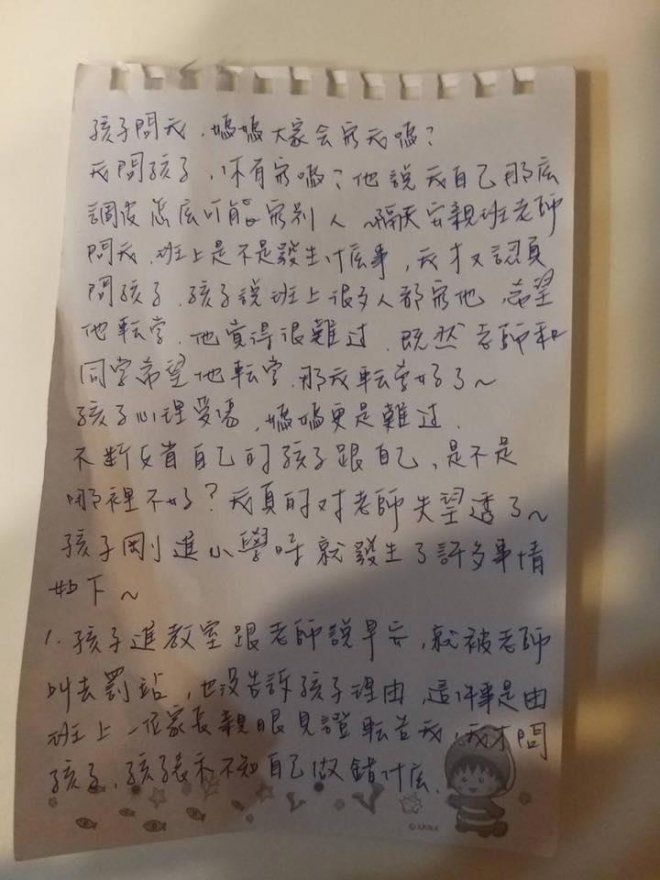 孩子問我，媽媽大家会写我嗎？
我問孩子，你有写嗎？他說我自己那麼
調皮怎麼可能写別人~隔天安親班老師
問我，班上是不是發生什麼事，我才又認真
問孩子，孩子說班上很多人都写他，希望
他転学，他覚得很難过，既然老師和
同学希望他転学，那我転学好了~
孩子心理受傷，媽媽更是難过，
不断反省自己的孩子跟自己，是不是
哪裡不好？我真的对老師失望透了~
孩子剛進小學時就發生了許多事情
如下~
1. 孩子進教室跟老師說早安，就被老師
叫去罰站，也沒告訴孩子理由，這件事是由
班上一位家長親眼見證転告我，我才問
孩子，孩子表示不知自己做錯什麼，